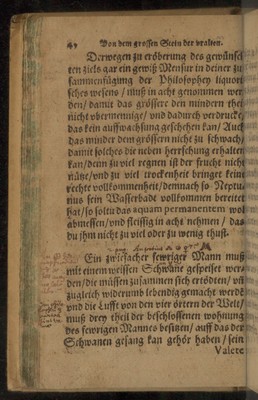 Von dem grossen Stein der vralten.
Derwegen zu eröberung des gewünsch
ten ziels gar ein gewiß Mensur in deiner zu
sammenfügung der Philosophey liquori
sches wesens / muß in acht genommen wer
den / damit das grössere den mindern theil
nicht vbermenige / vnd dadurch verdrucke /
das kein auffwachsung geschehen kan / Auch
das minder dem grössern nicht zu schwach /
damit solches die neben herrschung erhalten
kan / denn zu viel regnen ist der frucht nicht
nütze / vnd zu viel trockenheit bringet keine
rechte vollkommenheit / demnach so Neptu-
nus sein Wasserbade vollkommen bereitet
hat / so soltu das aquam permanentem wol
abmessen / vnd fleissig in acht nehmen / das
du ihm nicht zu viel oder zu wenig thust.
Ein zwiefacher fewriger Mann muß
mit einem weissen Schwane gespeiset wer-
den / die müssen zusammen sich ertödten / vñ
zugleich widerumb lebendig gemacht werdẽ
vnd die Lufft von den vier örtern der Welt /
muß drey theil der beschlossenen wohnung
des fewrigen Mannes besitzen / auff das der
Schwanen gesang kan gehör haben / sein
Valete